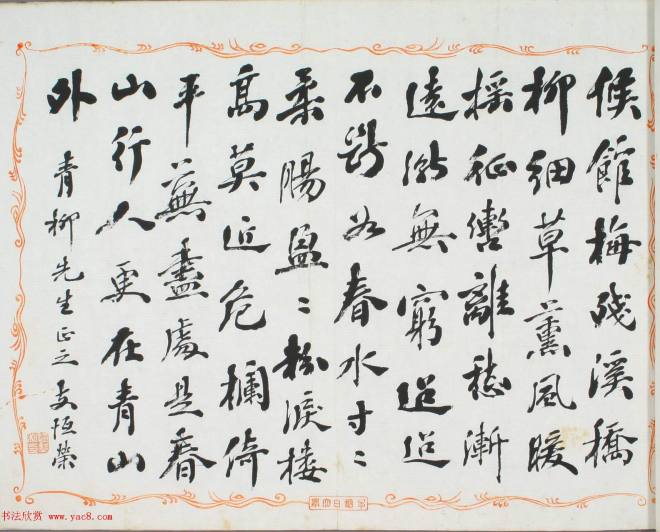 候館梅残溪橋
柳細草薰風暖
摇征轡離愁漸
遠漸無窮迢迢
不断如春水寸〻
柔腸盈〻粉淚樓
高莫近危欄倚
平蕪盡處是春
山行人更在青山
外 青柳先生正之 支恒榮
书法欣赏 www.yac8.com